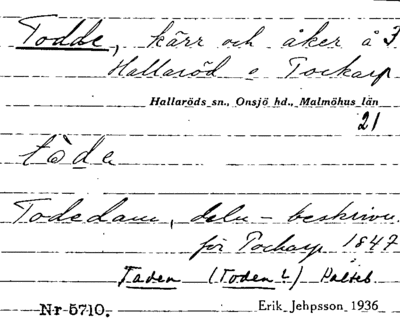 Todde, kärr och åker å 3
Hallaröd o Tockarp
Hallaröds sn., Onsjö hd., Malmöhus län
21
tòde
Todedam, deln-beskrivn.
för Tockarp 1847
Taden (Toden?)
Nr 5710. Erik Jehpsson 1936